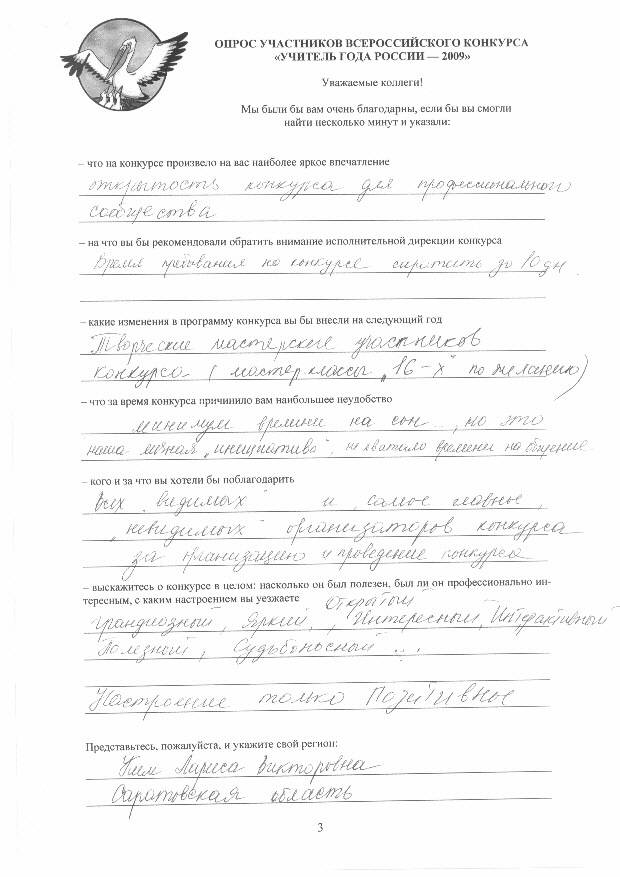 ОПРОС УЧАСТНИКОВ ВСЕРОССИЙСКОГО КОНКУРСА
«УЧИТЕЛЬ ГОДА РОССИИ — 2009»
Уважаемые коллеги!
Мы были бы вам очень благодарны, если бы вы смогли
найти несколько минут и указали:
– что на конкурсе произвело на вас наиболее яркое впечатление
открытость конкурса для профессионального
сообщества
– на что вы бы рекомендовали обратить внимание исполнительной дирекции конкурса
Время пребывания на конкурсе сократить до 10 дн.
– какие изменения в программу конкурса вы бы внесли на следующий год
Творческие мастерские участников
конкурса (мастер классы „16-х" по желанию)
– что за время конкурса причинило вам наибольшее неудобство
минимум времени на сон.., но это
наша личная „инициатива", не хватило времени на общение
– кого и за что вы хотели бы поблагодарить
Всех „видимых" и, самое главное,
„невидимых" организаторов конкурса
за организацию и проведение конкурса
– выскажитесь о конкурсе в целом: насколько он был полезен, был ли он профессионально ин-
тересным, с каким настроением вы уезжаете
Открытый
Грандиозный, Яркий, , Интересный, Интерактивный
Полезный, Судьбоносный ...
Настроение только Позитивное
Представьтесь, пожалуйста, и укажите свой регион:
Ким Лариса Викторовна
Саратовская область
3